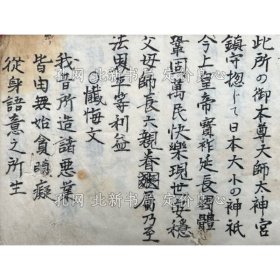 此所の御本尊天師太神宮
鎮守惣じて日本大小の神祇
今上皇帝寳祚延長國體
鞏固萬民快樂現世安穏
父母師長六親眷属乃至
法界平等利益
〇懺悔文
我昔所造諸悪業
皆由無始貪瞋癡
従身語意之所生